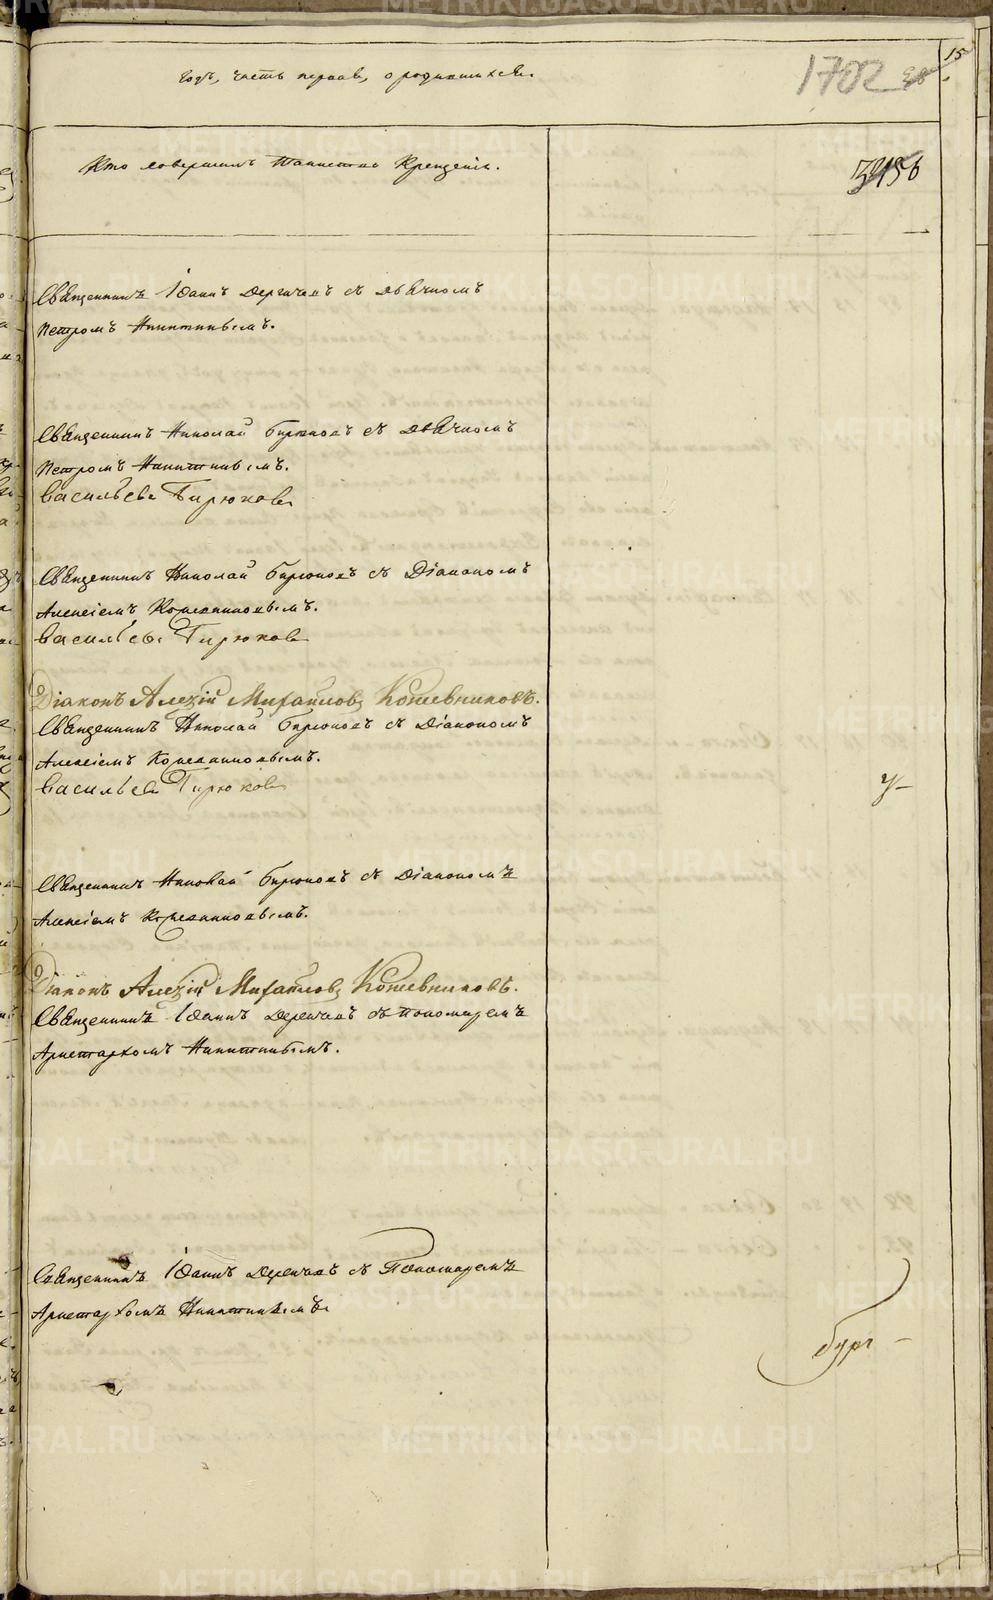 годъ, часть первая, о родившихся.
1702
15
Кто совершилъ таинство крещенія.
Священникъ Іоаннъ Дерпчевъ съ дьячкомъ
Петромъ Никитинымъ.
Священникъ Николай Бирюковъ съ дьячкомъ
Петромъ Никитинымъ.
Васильевъ Бирюковъ
Священникъ Николай Бирюковъ съ Діакономъ
Алексіемъ Кожевниковымъ.
Васильевъ Бирюковъ
Діаконъ Алезій Михаиловъ Кожевниковъ.
Священникъ Николай Бирюковъ съ Діакономъ
Алексіемъ Кожевниковымъ.
Васильевъ Бирюковъ
Священникъ Николай Бирюковъ съ Діакономъ
Алексіемъ Кожевниковымъ.
Діаконъ Алезій Михаиловъ Кожевниковъ.
Священникъ Іоаннъ съ Пономаремъ
Аристархомъ Никитинымъ.
Священникъ Іоаннъ съ Пономаремъ
Аристархомъ Никитинымъ.
METRIKI.GASO-URAL.RU